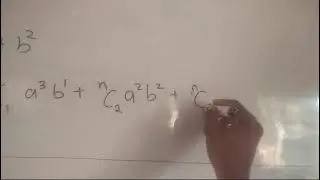 + b²
₁ a³b¹ + ⁿC₂ a²b² + ⁿC